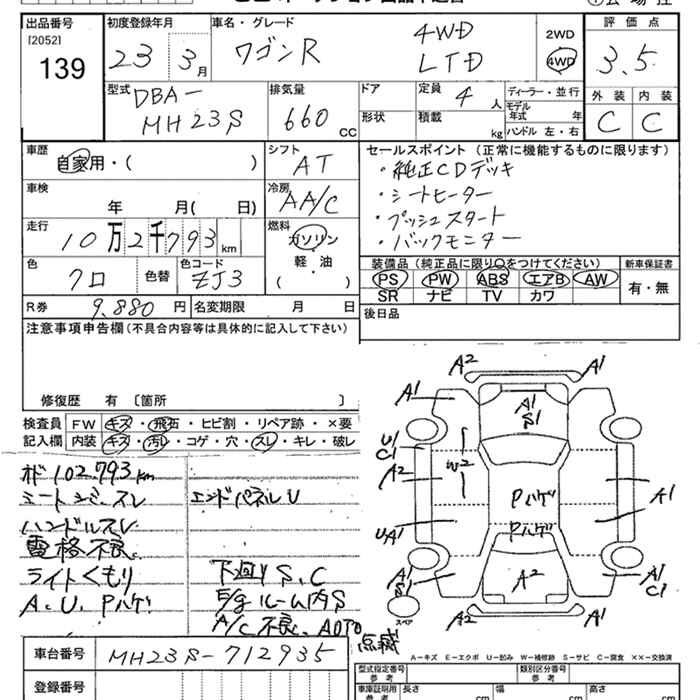 出品番号 初度登録年月 車名・グレード 2WD 評価点
[2052] 139 23 3月 ワゴンR 4WD LTD 4WD 3.5
型式 DBA-MH23S 排気量 660 cc ドア 定員 4人 ディーラー・並行 外装 内装
形状 積載 kg モデル年式 年 C C
ハンドル 左・右
車歴 自家用・( ) シフト AT セールスポイント (正常に機能するものに限ります)
・純正CDデッキ
車検 年 月( 日) 冷房 AA/C ・シートヒーター
・プッシュスタート
走行 10万2千793km 燃料 ガソリン ・バックモニター
軽・油
( )
色 クロ 色替 色コード ZJ3 装備品(純正品に限り○をつけてください) 新車保証書
PS PW ABS エアB AW 有・無
SR ナビ TV カワ
R券 9.880円 名変期限 月 日 後日品
注意事項申告欄(不具合内容等は具体的に記入して下さい)
修復歴 有〔箇所 〕
検査員 FW キズ・飛石・ヒビ割・リペア跡・×要
記入欄 内装 キズ・汚レ・コゲ・穴・スレ・キレ・破レ
オド102.793km
シートシミ、スレ エンドパネルU
ハンドルスレ
電格不良、
ライトくもり 下廻りS、C
A、U、Pハゲ E/gルーム内S
A/C不良、AOTO点滅
A2 A1
A1 A1 S1 A1
U1 C1 W2
A2 Pハゲ A1
UA1 Pハゲ
A1 S1 A2 A1 C1
スペア A2 A1
A-キズ E-エクボ U-凹み W-補修跡 S-サビ C-腐食 ××-交換済
車台番号 MH23S-712935
型式指定番号 参考 類別区分番号 参考
登録番号 車庫証明用 参考 長さ cm 幅 cm 高さ cm